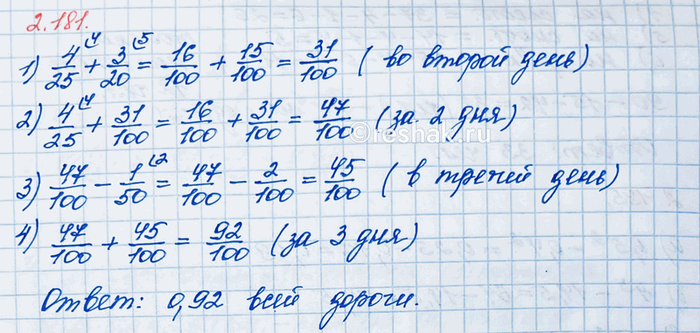 2.181.
1) 4/25 (4 + 3/20 (5 = 16/100 + 15/100 = 31/100 (во второй день)
2) 4/25 (4 + 31/100 = 16/100 + 31/100 = 47/100 (за 2 дня)
3) 47/100 - 1/50 (2 = 47/100 - 2/100 = 45/100 (в третий день)
4) 47/100 + 45/100 = 92/100 (за 3 дня)
Ответ: 0,92 всей дороги.
©reshak.ru